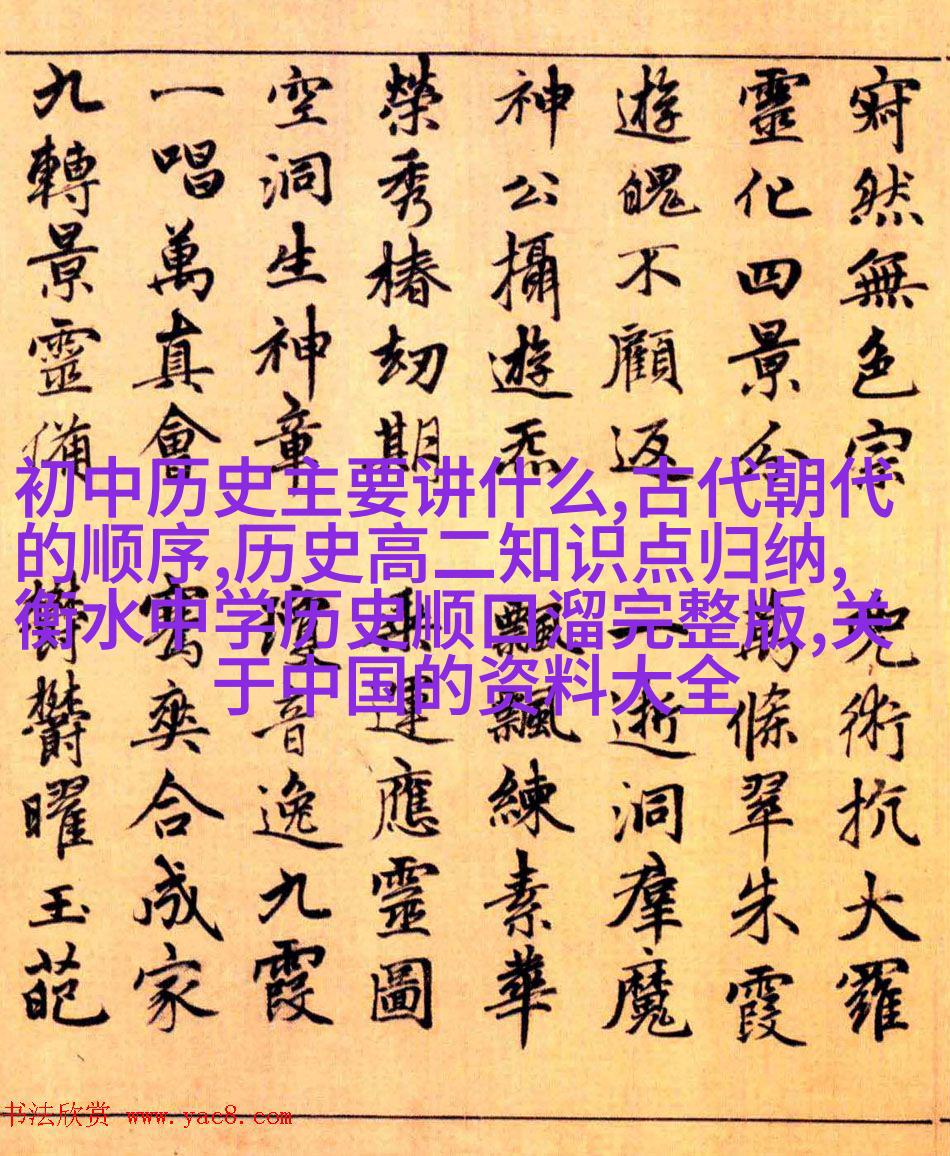 寂然無色宗 兜術抗大羅
靈化四景分 萬條翠朱霞
遊魄不顧返 一逝洞群魔
神公攝遊炁 飄飄練素華
榮秀椿劫期 乘運應靈圖
空洞生神章 瓊音逸九霞
一唱萬真會 騫爽合成家
九轉景靈備 鬱鬱曜玉葩
初中历史主要讲什么,古代朝代
的顺序,历史高二知识点归纳,
衡水中学历史顺口溜完整版,关
于中国的资料大全
书法欣赏 www.yac8.com